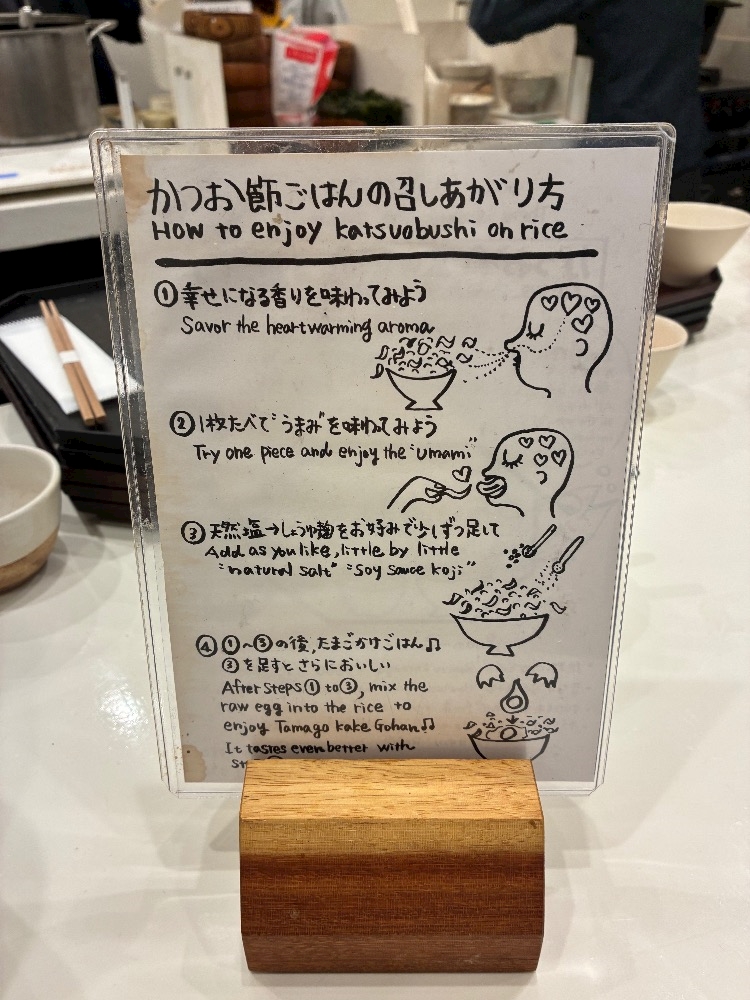 かつお節ごはんの召しあがり方
How to enjoy katsuobushi on rice
①幸せになる香りを味わってみよう
Savor the heartwarming aroma
②1枚たべて"うまみ"を味わってみよう
Try one piece and enjoy the "umami"
③天然塩→しょうゆ麹をお好みで少しずつ足して
Add as you like, little by little
"natural salt" "Soy sauce koji"
④①~③の後、たまごかけごはん♫
③を足すとさらにおいしい
After steps① to③, mix the
raw egg into the rice to
enjoy Tamago kake Gohan♫
It tastes even better with